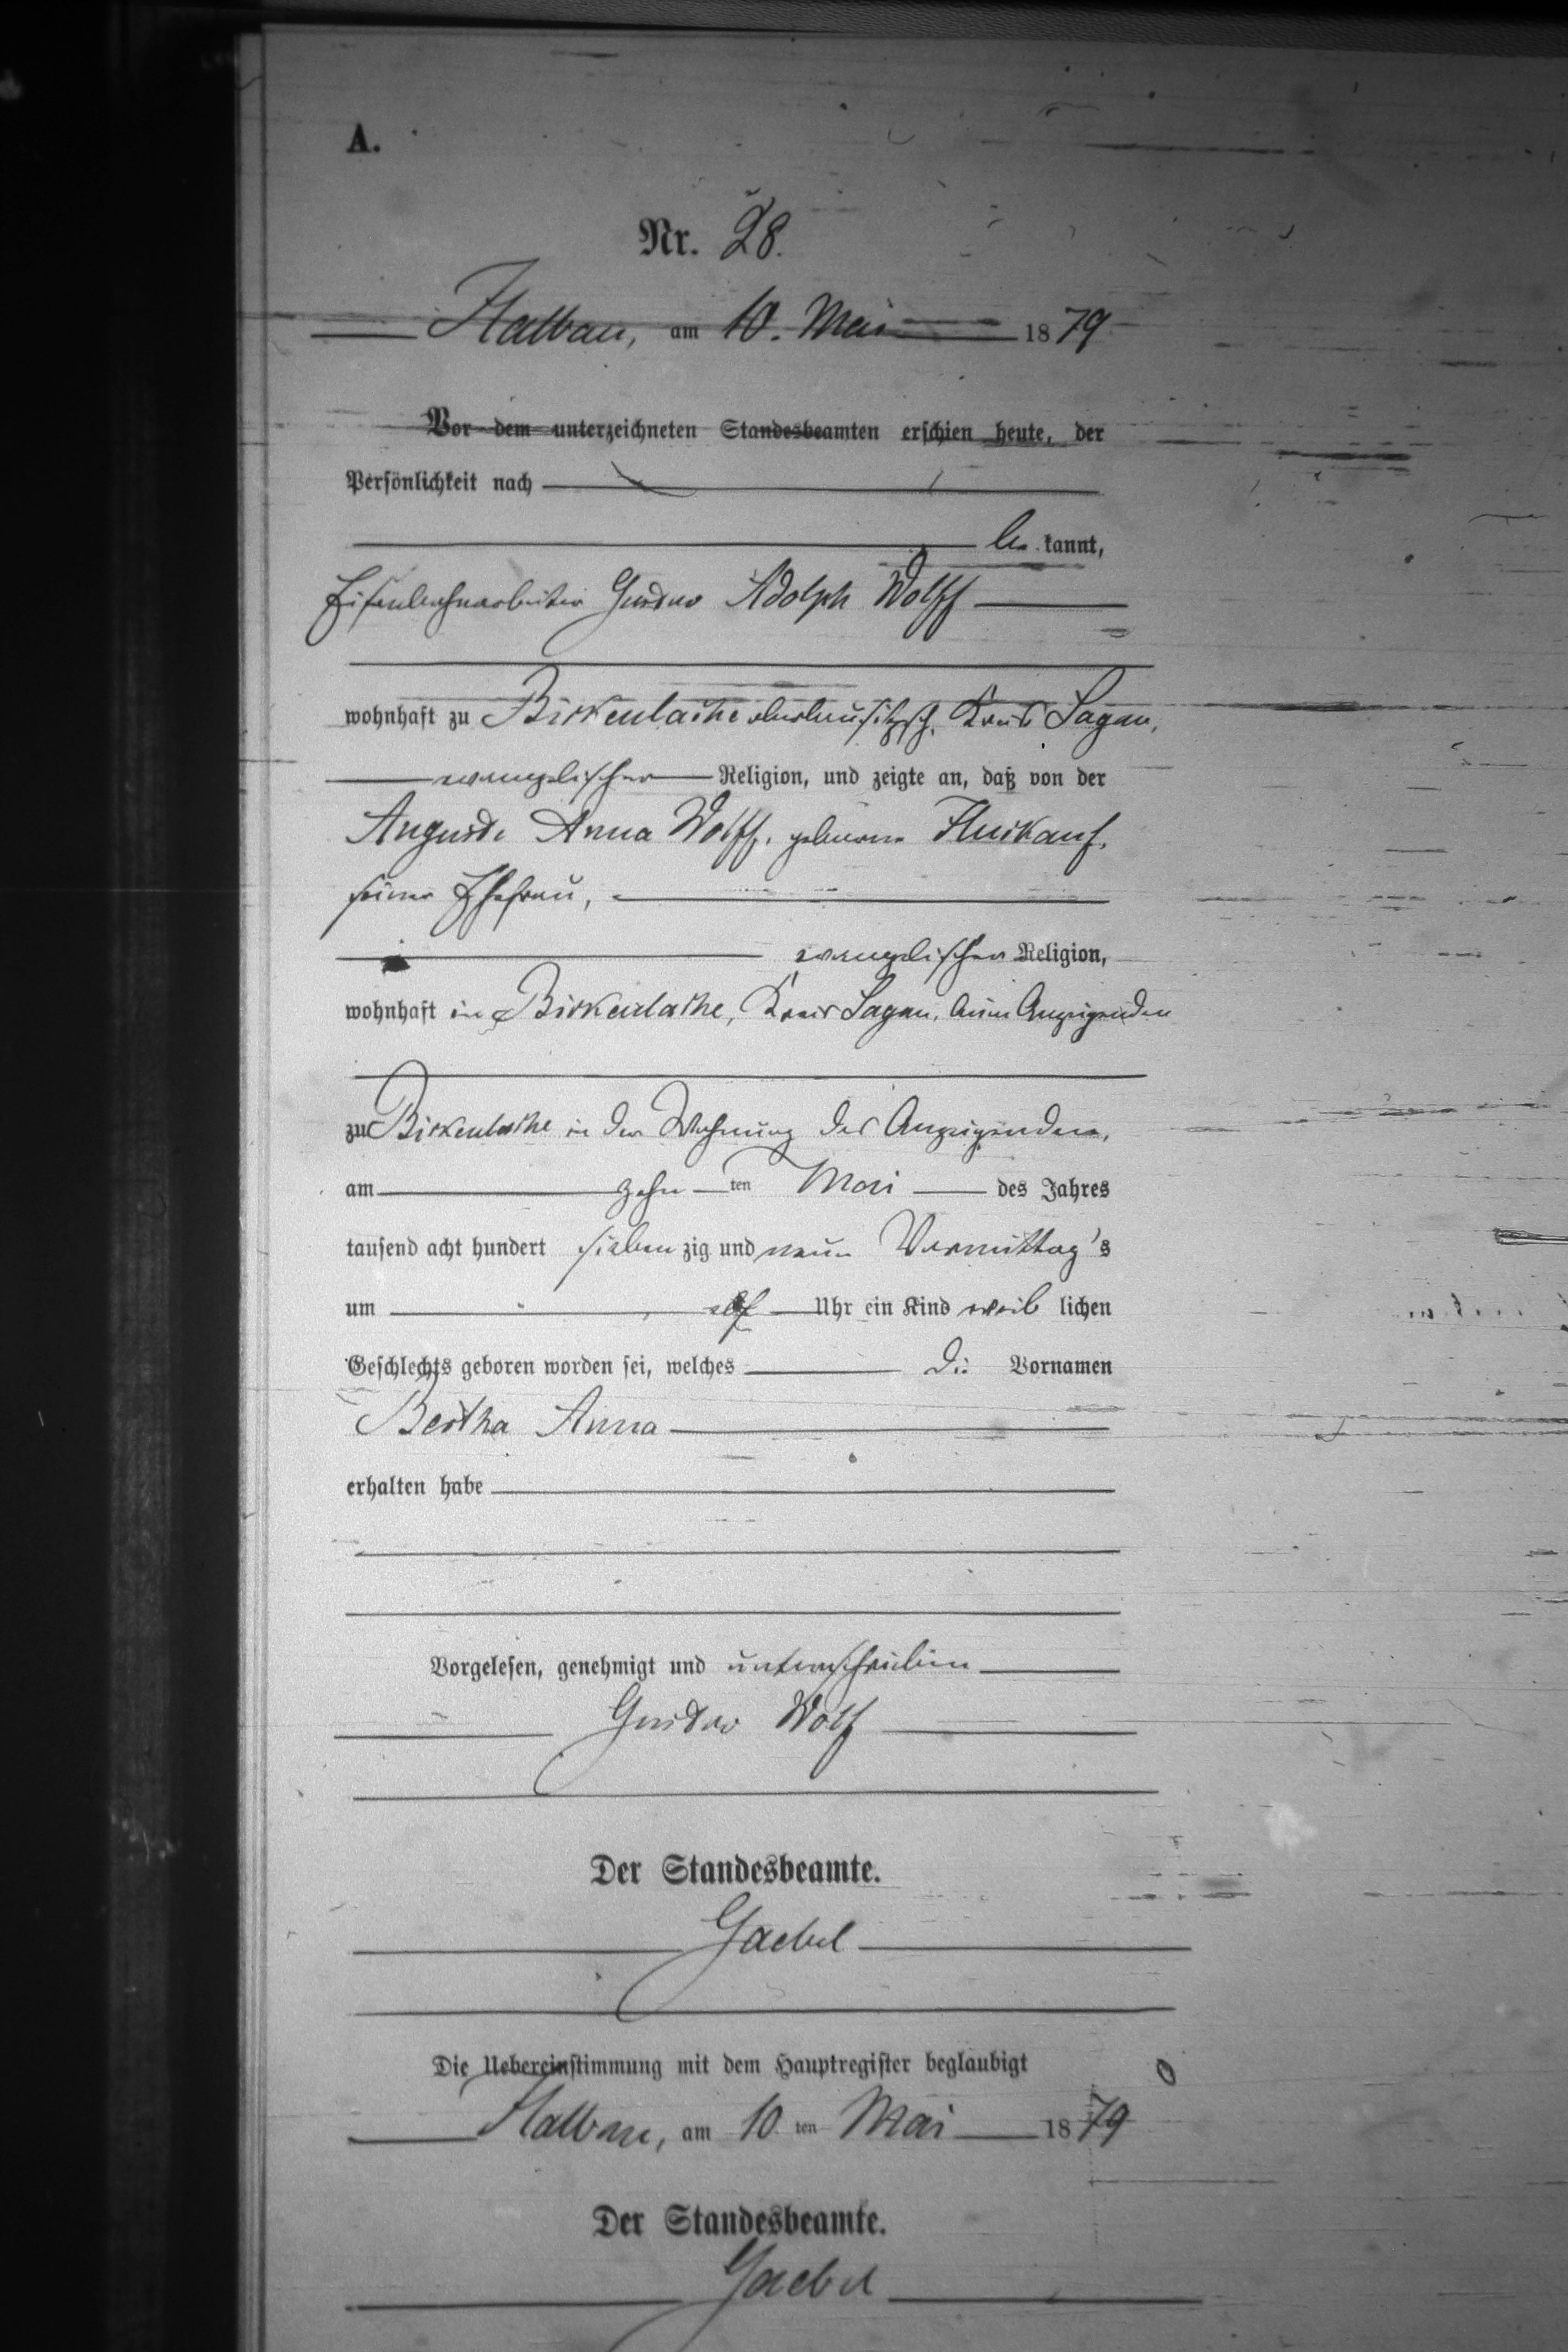 A.
Nr. 28.
Halbau, am 10. Mai 1879
Vor dem unterzeichneten Standesbeamten erschien heute, der
Persönlichkeit nach
be kannt,
Eisenbahnarbeiter Gustav Adolph Wolff
wohnhaft zu Birkenlache oberlausitzisch, Kreis Sagan,
evangelischer Religion, und zeigte an, daß von der
Auguste Anna Wolff, geborene
seiner Ehefrau,
evangelischer Religion,
wohnhaft in Birkenlache, Kreis Sagan, beim Anzeigenden
zu Birkenlache in der Wohnung des Anzeigenden,
am zehn ten Mai des Jahres
tausend acht hundert sieben zig und neun Vormittag's
um elf Uhr ein Kind weib lichen
Geschlechts geboren worden sei, welches die Vornamen
Bertha Anna
erhalten habe
Vorgelesen, genehmigt und unterschrieben
Gustav Wolf
Der Standesbeamte.
Gaebel
Die Uebereinstimmung mit dem Hauptregister beglaubigt
Halbau, am 10 ten Mai 1879
Der Standesbeamte.
Gaebel